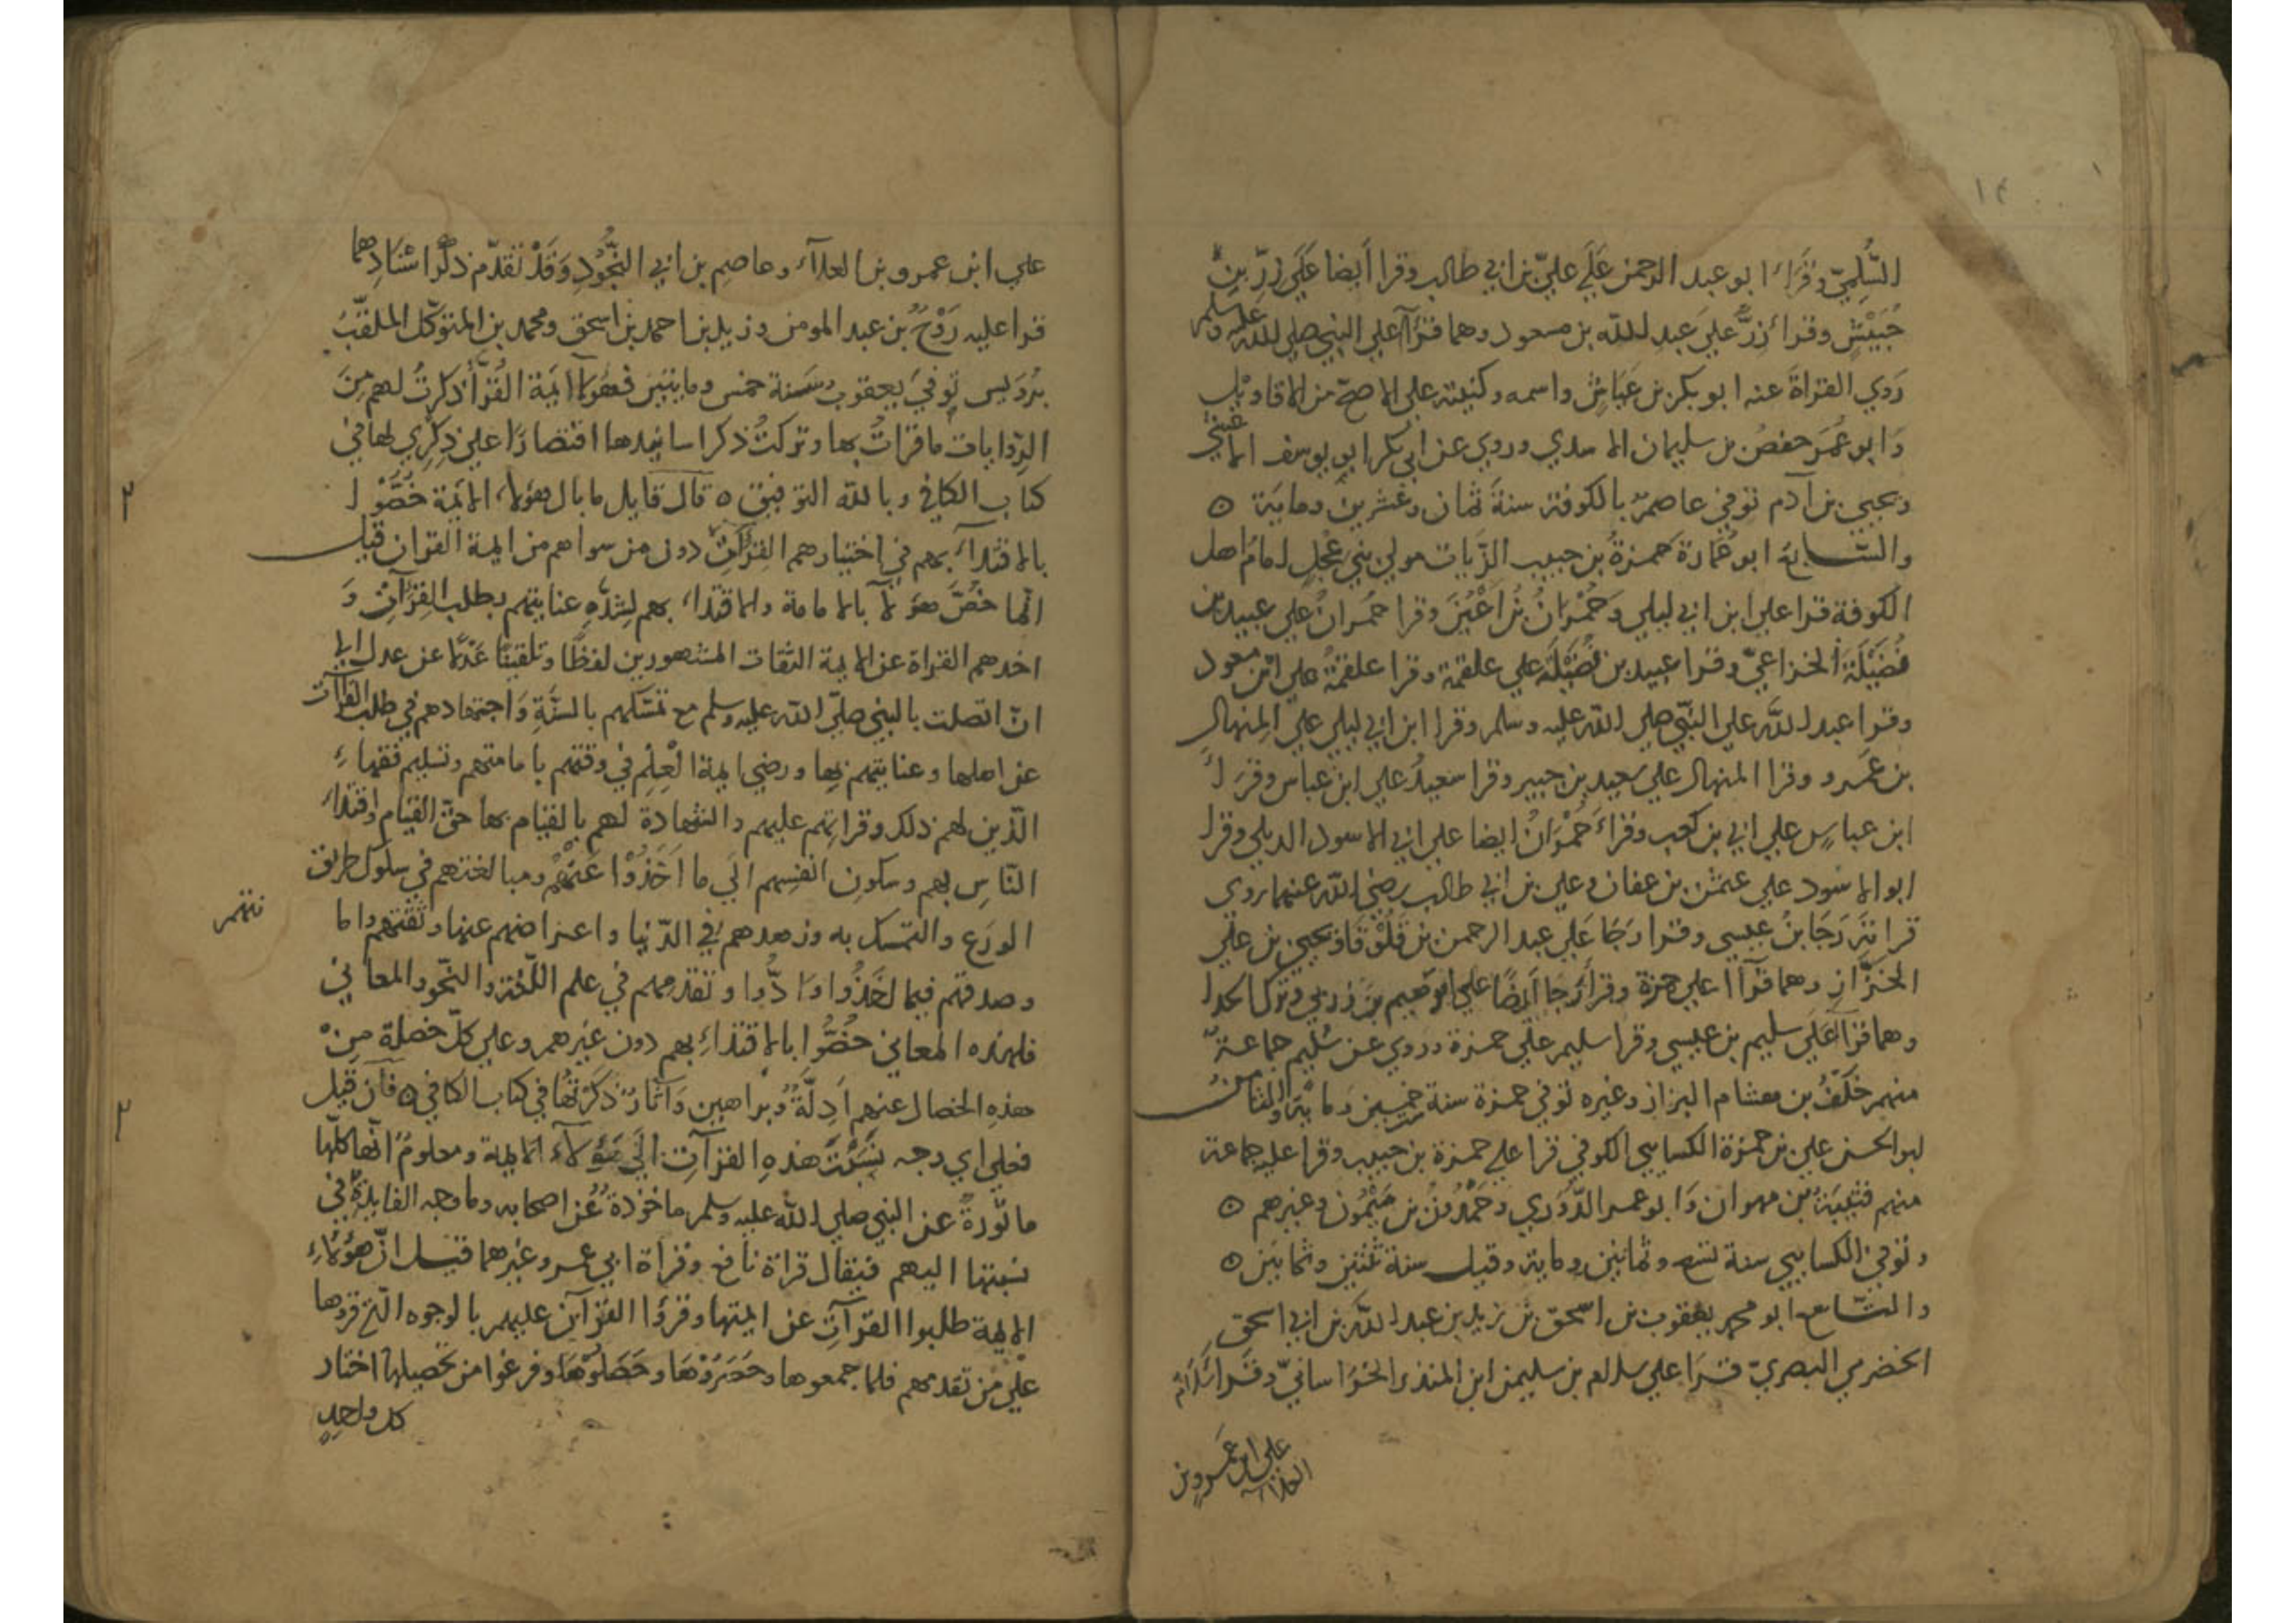 السُّلَمِيّ وقَرَاَ ابو عبد الرحمن عَلَي عليّ بن ابي طالب وقرا أيضا عَلَي زِرِّ بنِ
حُبَيْشٍ وقرا زِرٌّ عليَ عبدِ الله بن مسعود وهما قرآ علي النبي صلي الله عليه وسلم
رَوي القراةَ عنه ابو بكر بن عَيّاشٍ واسمه وكنيته علي الاصحّ من الاقاويل
وَابو عُمَرَ حفصُ بن سليمان الاسدي وروي عن ابي بكر ابو يوسف الاعشي
ويحيي بن آدم توفي عاصمٌ بالكوفة سنةَ ثمان وعشرين وماية ٥
والسّابع ابو عُمارة حمزةُ بن حبيب الزّيات مولي بني عِجْلٍ امامُ اهل
الكوفة قرا علي ابن ابي ليلي وَحُمْرانُ بن اَعْيَنَ وقرا حُمرانُ علي عبيد بن
نُضَيْلَة الخزاعيّ وقرا عبيد بن نُضَيْلَة علي علقمة وقرا علقمةُ علي ابن مسعود
وقرا عبد الله علي النّبي صلي الله عليه وسلم وقرا ابن ابي ليلي علي المِنهالِ
بن عَمرو وقرا المنهال علي سعيد بن جبير وقرا سعيدُ علي ابن عباس وقرَا
ابن عباسٍ علي ابي بن كعب وقراَ حُمْرَانُ ايضا علي ابي الاسود الديلي وقرا
ابو الاسود علي عثمٰن بن عفان وعلي بن ابي طالب رضي الله عنهما روي
قراتَهُ رَجَا بنُ عيسي وقرا رَجَا عَلي عبد الرحمن بن قَلُوْقَا ويحيي بن علي
الخزّازِ وهما قرآا علي حمزة وقرأ رَجا اَيضًا علي ابرهيم بن زربي وترك الحدا
وهما قرآ عَلَي سليم بن عيسي وقرا سليم علي حمزة وروي عن سُليم جماعةٌ
منهم خَلَفُ بن هشام البزاز وغيره توفي حمزة سنة خمسين وماية والثامن
ابو الحسن علي بن حمزة الكسايي الكوفي قرا علي حمزة بن حبيب وقرا عليه جماعة
منهم قتيبَةُ بن مهران وَابو عمر الدّوري وحَمْدُونُ بن مَيْمُون وغيرهم ٥
وتوفي الكسايي سنة تسع وثمانين وماية وقيل سنة ثنتين وثمانين ٥
والتّاسع ابو محمد يعقوب بن اسحق بن زيد بن عبد الله بن ابي اسحق
الحضرمي البصريّ قرَا علي سلام بن سليمن ابن المنذر الخراسانيّ وقرا سَلَام
علي ابن عَمرو بن
العلاء
علي ابن عمرو بن العلآء وعاصِم بن ابي النَّجُودِ وَقَدْ تقدّم ذكْرُ اسْنَادِهما
قرا عليه رَوْحُ بن عبد المومن وزيد بن احمد بن اسحق ومحمد بن المتوكّل الملقّبُ
برُوَيس تُوفيَ يعقوب سَنة خمس ومايتين فهؤلآ ايمة القُرّآ ذكرتُ لهم مِنَ
الرّوايات ما قراتُ بها وتركتُ ذكر اسانيدها اقتصارًا علي ذِكْرِي لها في
كتاب الكافي وبالله التوفيق ٥ قال قايل ما بال هؤلاء الايمة خُصُّوا
بالاقتداء بهم في اختيارهم القراآتِ دون من سواهم من ايمة القران قيل
انّما خُصَّ هؤلآ بالامامة والاقتداء بهم لشدّةِ عنايتهم بطلب القراآتِ وَ
اخذهم القراة عن الايمة الثقات المشهورين لفظًا وتلقينًا عَدلًا عن عدل الي
انّ اتصلت بالنبي صلّي الله عليه وسلم مع تمسّكهم بالسنَّةِ وَاجتهادهم في طلب القراآت
عن اهلها وعنايتهم بها ورضي ايمة الْعِلمِ في وقتهم بامامتهم وتسليم فقهاءِ
الّذين لهم ذلك وقراتهم عليهم والشهادة لهم بالقيام بها حقّ القيام واقتداء
النّاسِ بهم وسكونِ انفسِهم الَي ما اَخَذُوْا عَنْهُمْ ومبالغتهم في سلوك طريق
الورَع والتمّسك به وزهدهم في الدّنيا واعراضهم عنها وثقتهم واما
نتهم
وصدقهم فيما اخَذُوا وَادُّوا وتقدّمهم في علم اللّغة والنّحو والمعاني
فلهذه المعاني خُصُّوا بالاقتداءِ بهم دون غَيرهم وعلي كلّ خصلة مِنْ
هذهِ الخصال عنهم اَدِلَّةُ وبراهين وَآثارٌ ذكَرْتُها في كتاب الكافي ٥ فان قيل
فعلي اي وجه نُسِبَتْ هذهِ القراآتِ الَي هؤلآءِ الايمة ومعلومٌ انّها كلّها
ماثورةٌ عن النبي صلي الله عليه وسلم ماخوذةُ عن اصحابه وما وجه الفايدةُ في
نسبتها اليهم فيقال قراة نافع وقراة ابي عمرو وغيرهما قيل انّ هؤلاءِ
الايمة طلبوا القرآتِ عن ايمتها وقرؤا القرآن عليهم بالوجوه الّتي قروها
علي من تقدمهم فلما جمعوها وحَصَرُوْهَا وحَصَلُوْهَا وفرغوا من تحصيلها اختار
كل واحِدٍ